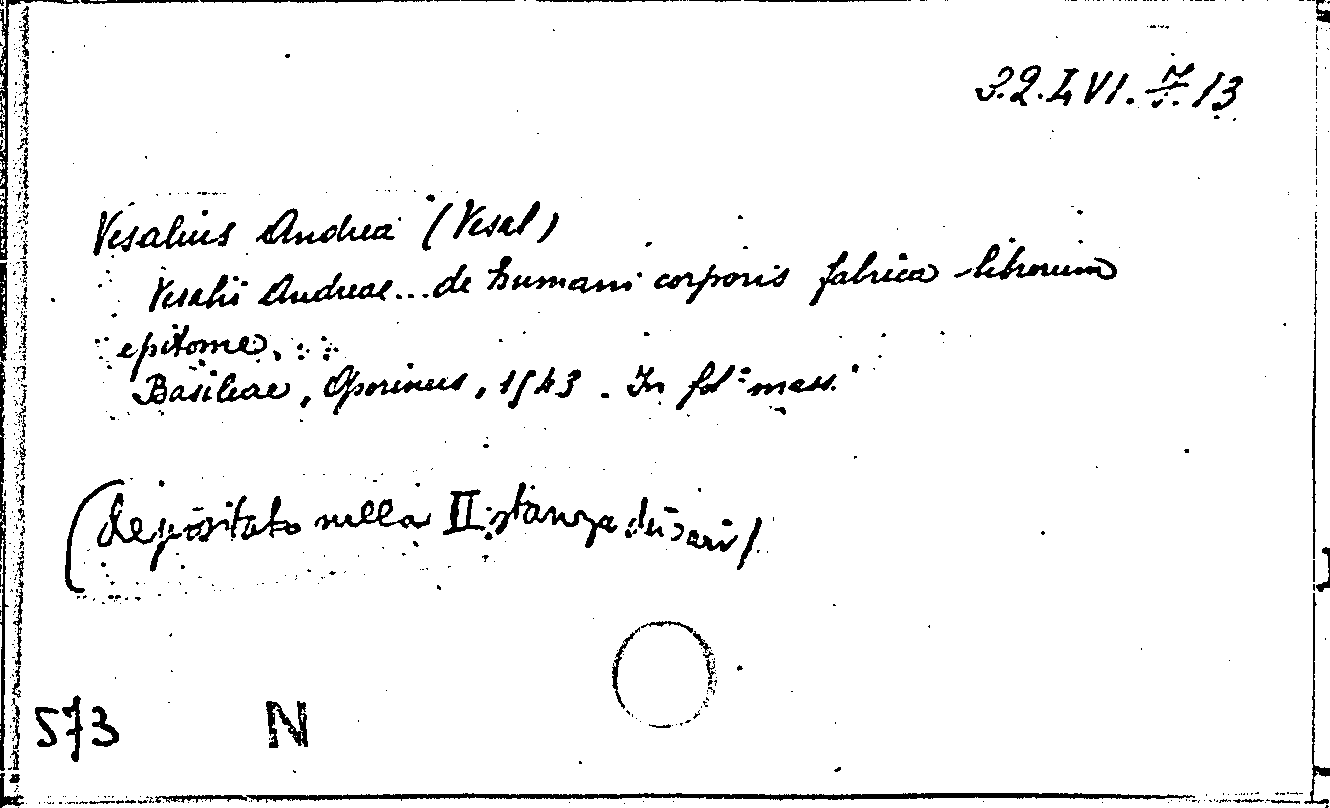 32. I, VI. 7. 13
Vesalius Andrea (Vesal)
Vesalii Andreae... de humani corporis fabrica librorum
epitome.
Basileae, Oporinus, 1543. In fol° mass.
(depositato nella II stanza
573 N